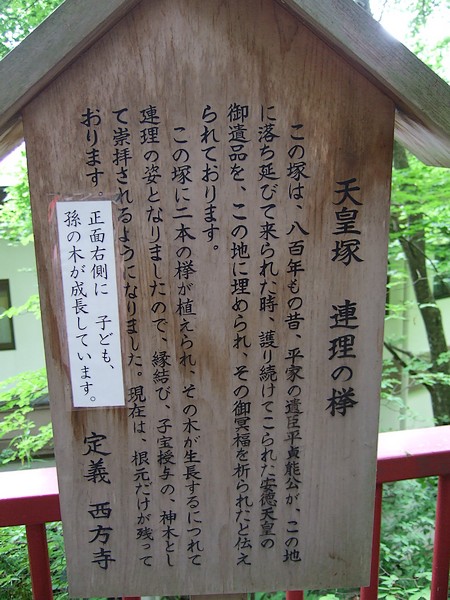 天皇塚　連理の欅
この塚は、八百年もの昔、平家の遺臣平貞能公が、この地
に落ち延びて来られた時、護り続けてこられた安徳天皇の
御遺品を、この地に埋められ、その御冥福を祈られたと伝え
られております。
この塚に二本の欅が植えられ、その木が生長するにつれて
連理の姿となりましたので、縁結び、子宝授与の、神木とし
て崇拝されるようになりました。現在は、根元だけが残って
おります。
正面右側に　子ども、
孫の木が成長しています。
定義　西方寺